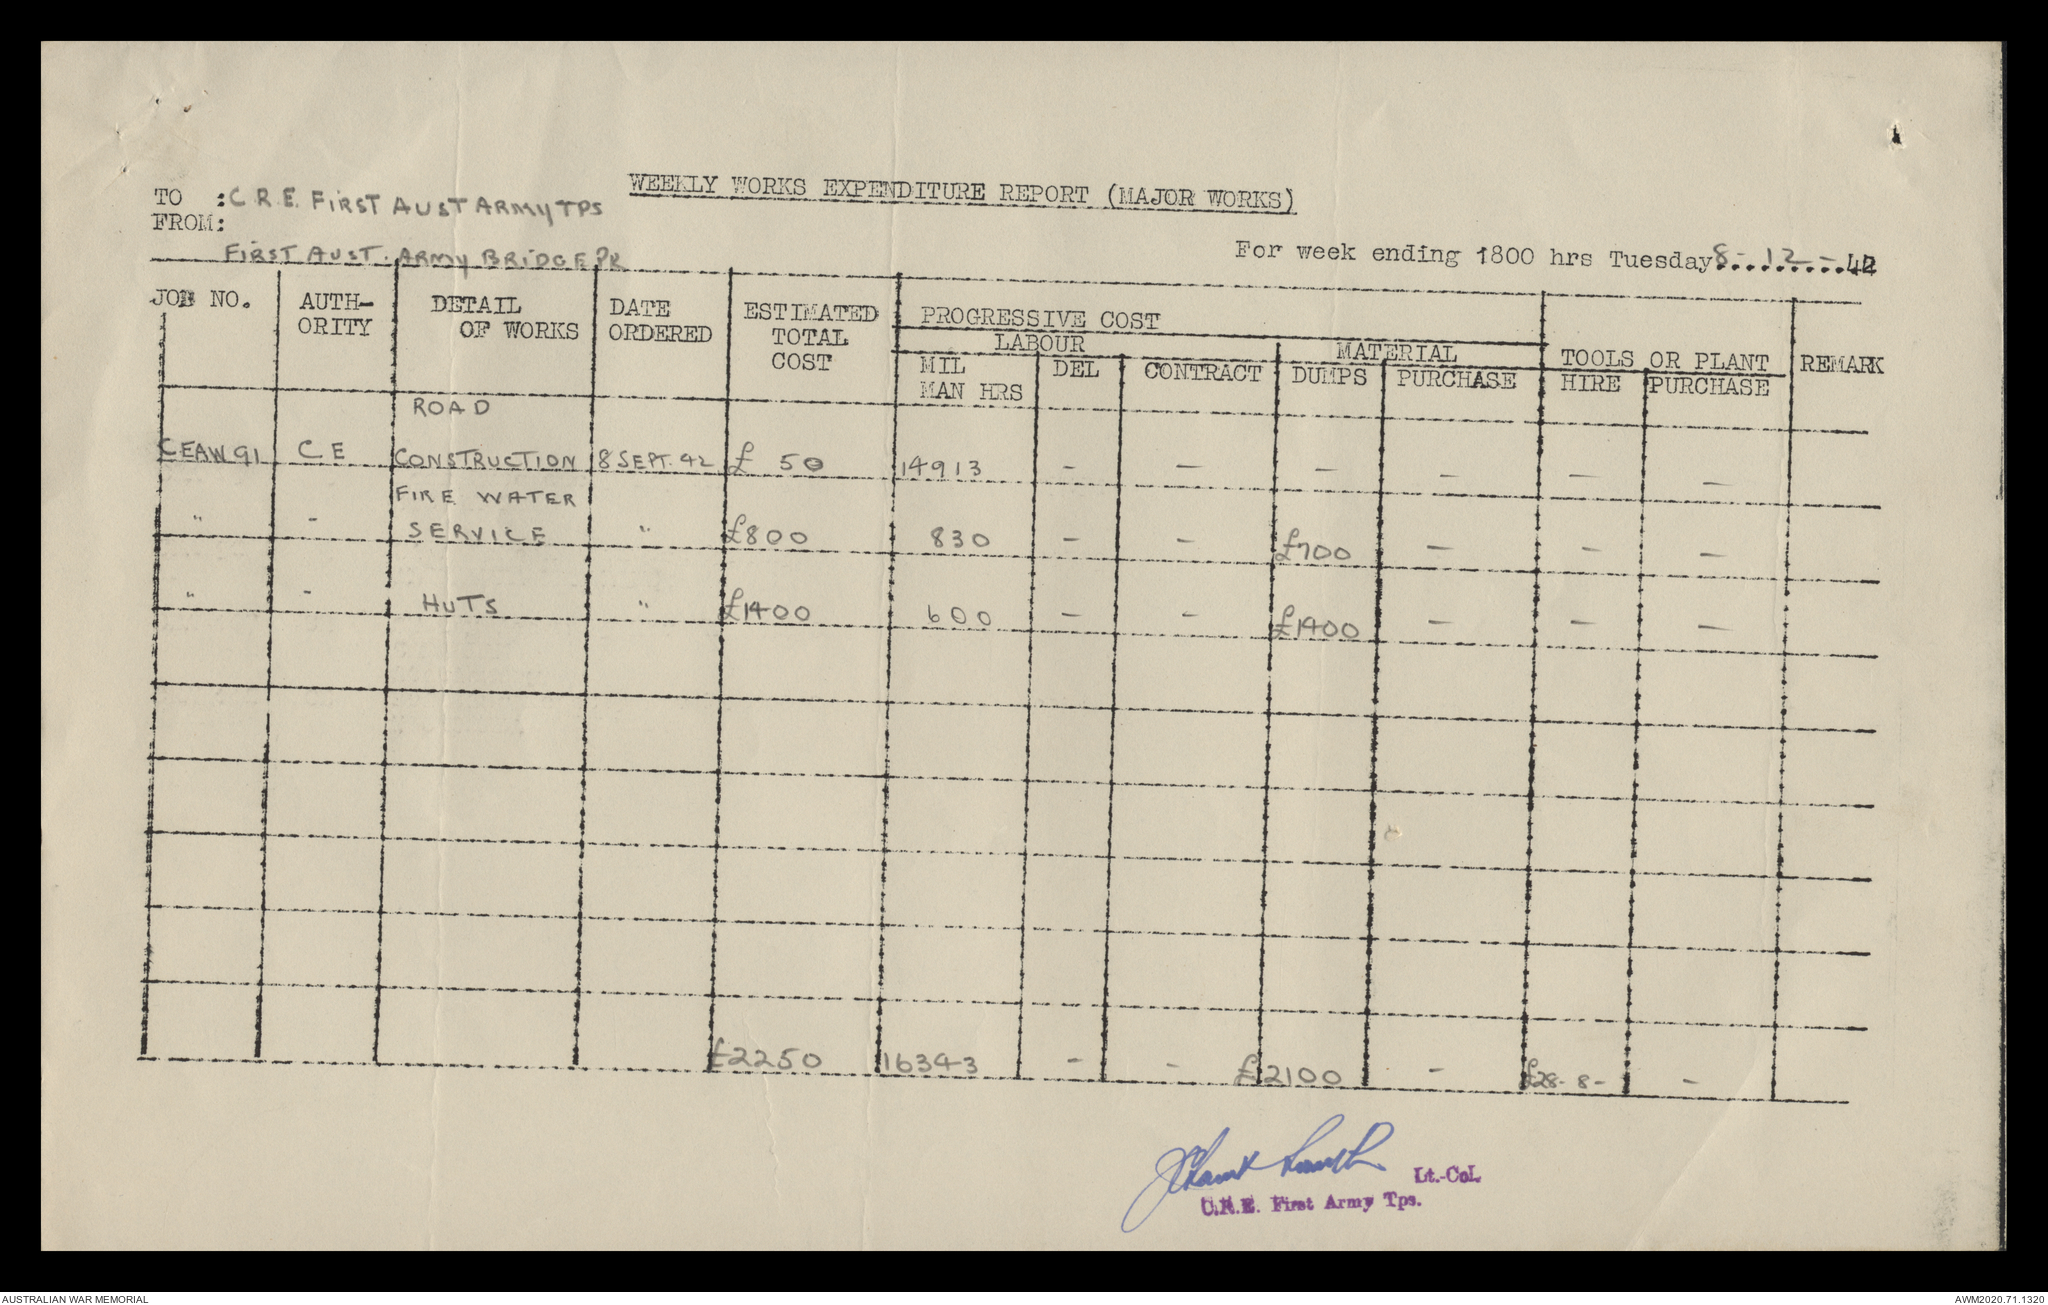 WEEKLY WORKS EXPENDITURE REPORT (MAJOR WORKS)
TO :C.R.E. FIRST AUST ARMY TPS
FROM:
FIRST AUST. ARMY BRIDGE PK
For week ending 1800 hrs Tuesday 8-12-42
JOB NO. AUTH- DETAIL DATE ESTIMATED PROGRESSIVE COST
ORITY OF WORKS ORDERED TOTAL LABOUR MATERIAL TOOLS OR PLANT REMARK
COST MIL DEL CONTRACT DUMPS PURCHASE HIRE PURCHASE
MAN HRS
ROAD
CEAW 91 C E CONSTRUCTION 8 SEPT. 42 £ 50 14913 - - - - - -
FIRE WATER
" - SERVICE " £800 830 - - £700 - - -
" - HUTS " £1400 600 - - £1400 - - -
£2250 16343 - - £2100 - £28-8- -
Lt.-Col.
C.R.E. First Army Tps.
AUSTRALIAN WAR MEMORIAL
AWM2020.71.1320